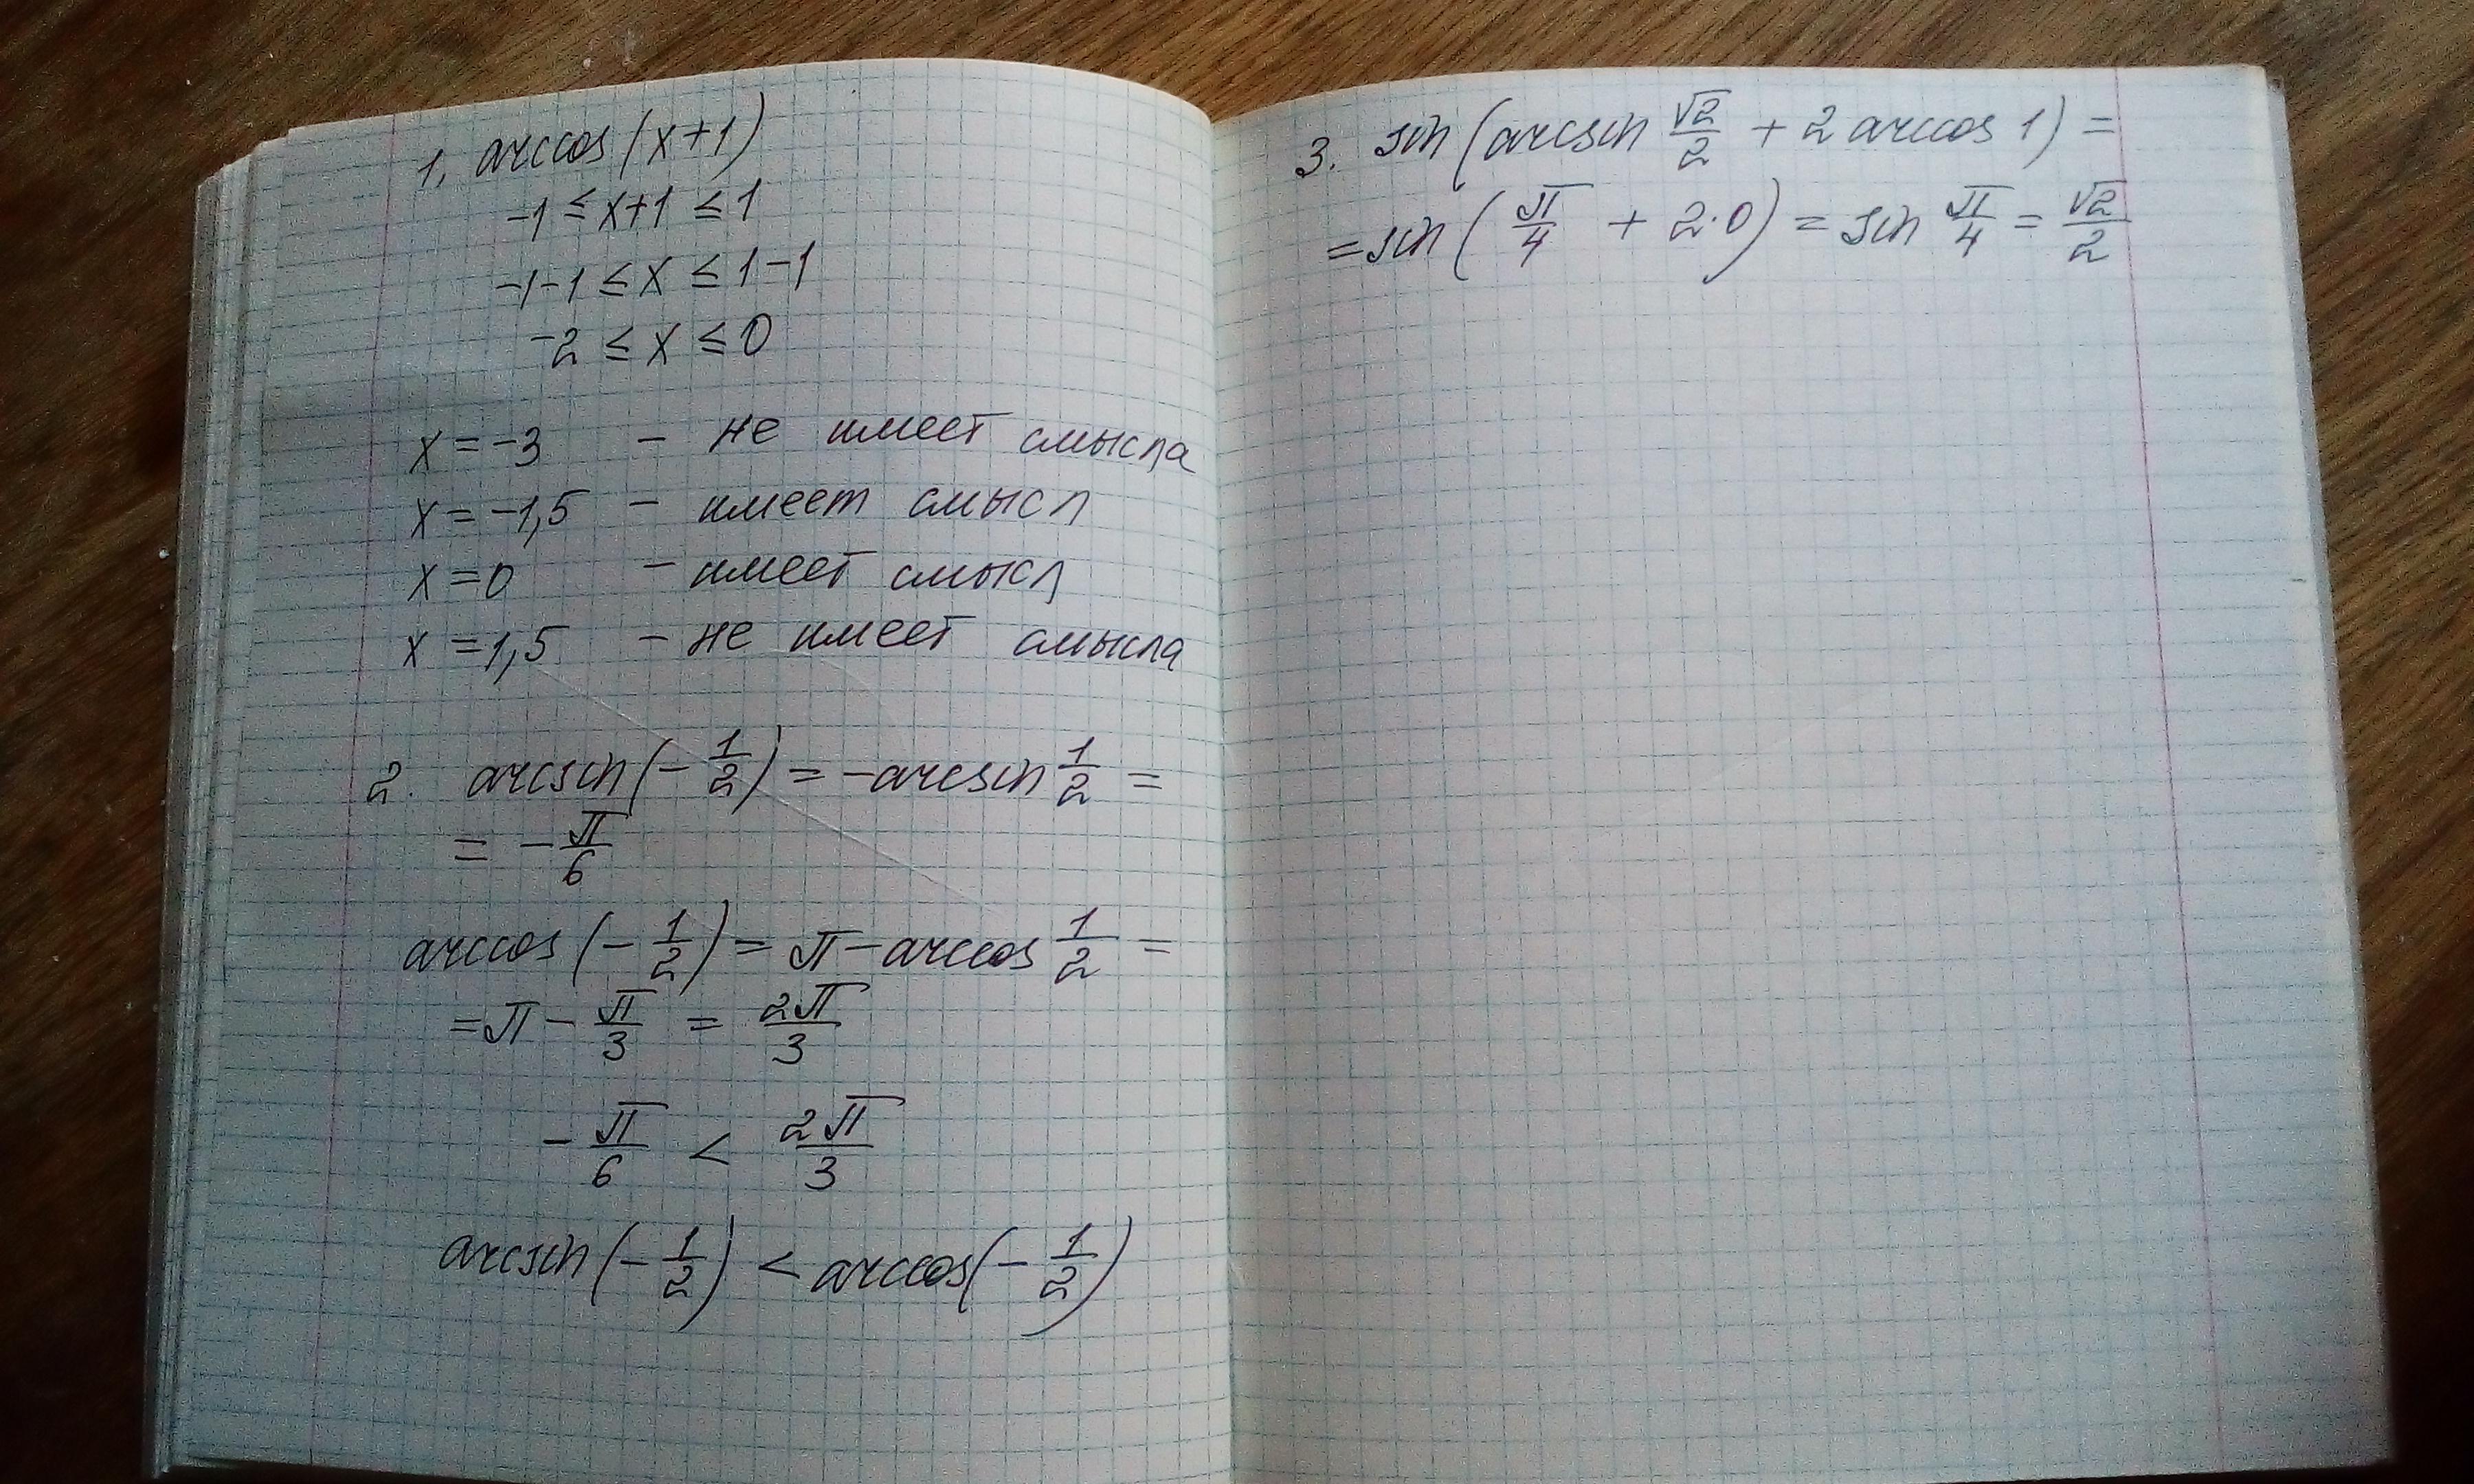 1. arccos(x+1)
-1 ≤ x+1 ≤ 1
-1-1 ≤ x ≤ 1-1
-2 ≤ x ≤ 0
x = -3 - не имеет смысла
x = -1,5 - имеет смысл
x = 0 - имеет смысл
x = 1,5 - не имеет смысла
2. arcsin(-1/2) = -arcsin 1/2 =
= -π/6
arccos(-1/2) = π - arccos 1/2 =
= π - π/3 = 2π/3
-π/6 < 2π/3
arcsin(-1/2) < arccos(-1/2)
3. sin(arcsin √2/2 + 2 arccos 1) =
= sin(π/4 + 2·0) = sin π/4 = √2/2